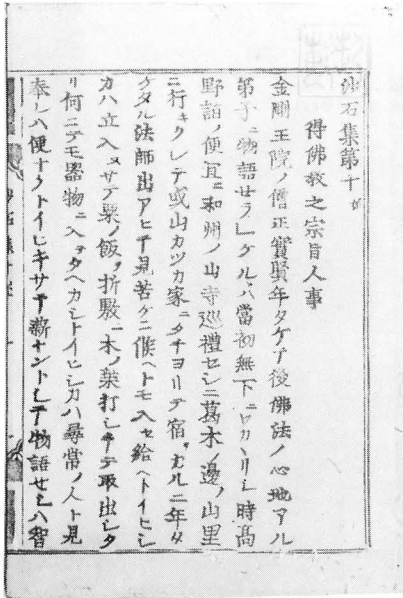 沙石集第十
得佛教之宗旨人事
金剛王院ノ僧正實賢年タケテ後佛法ノ心地アル
弟子ニ物語セラレケルハ當初無下ニワカヽリシ時高
野詣ノ便宜ニ和州ノ山寺巡禮セシニ葛木ノ邊ノ山里
ニ行キクレテ或山カツカ家ニタチヨリテ宿ヲカルニ年タ
ケタル法師出アヒテ見苦ケニ候ヘトモ入セ給ヘトイヒシ
カハ立入ヌサテ粟ノ飯ヲ折敷ニ木ノ葉打シキテ取出シタ
リ何ニテモ器物ニ入ヲタヘカシトイヒシカハ尋常ノ人ト見
奉レハ便ナクトイヒキサテ薪ナントシテ物語セシハ智